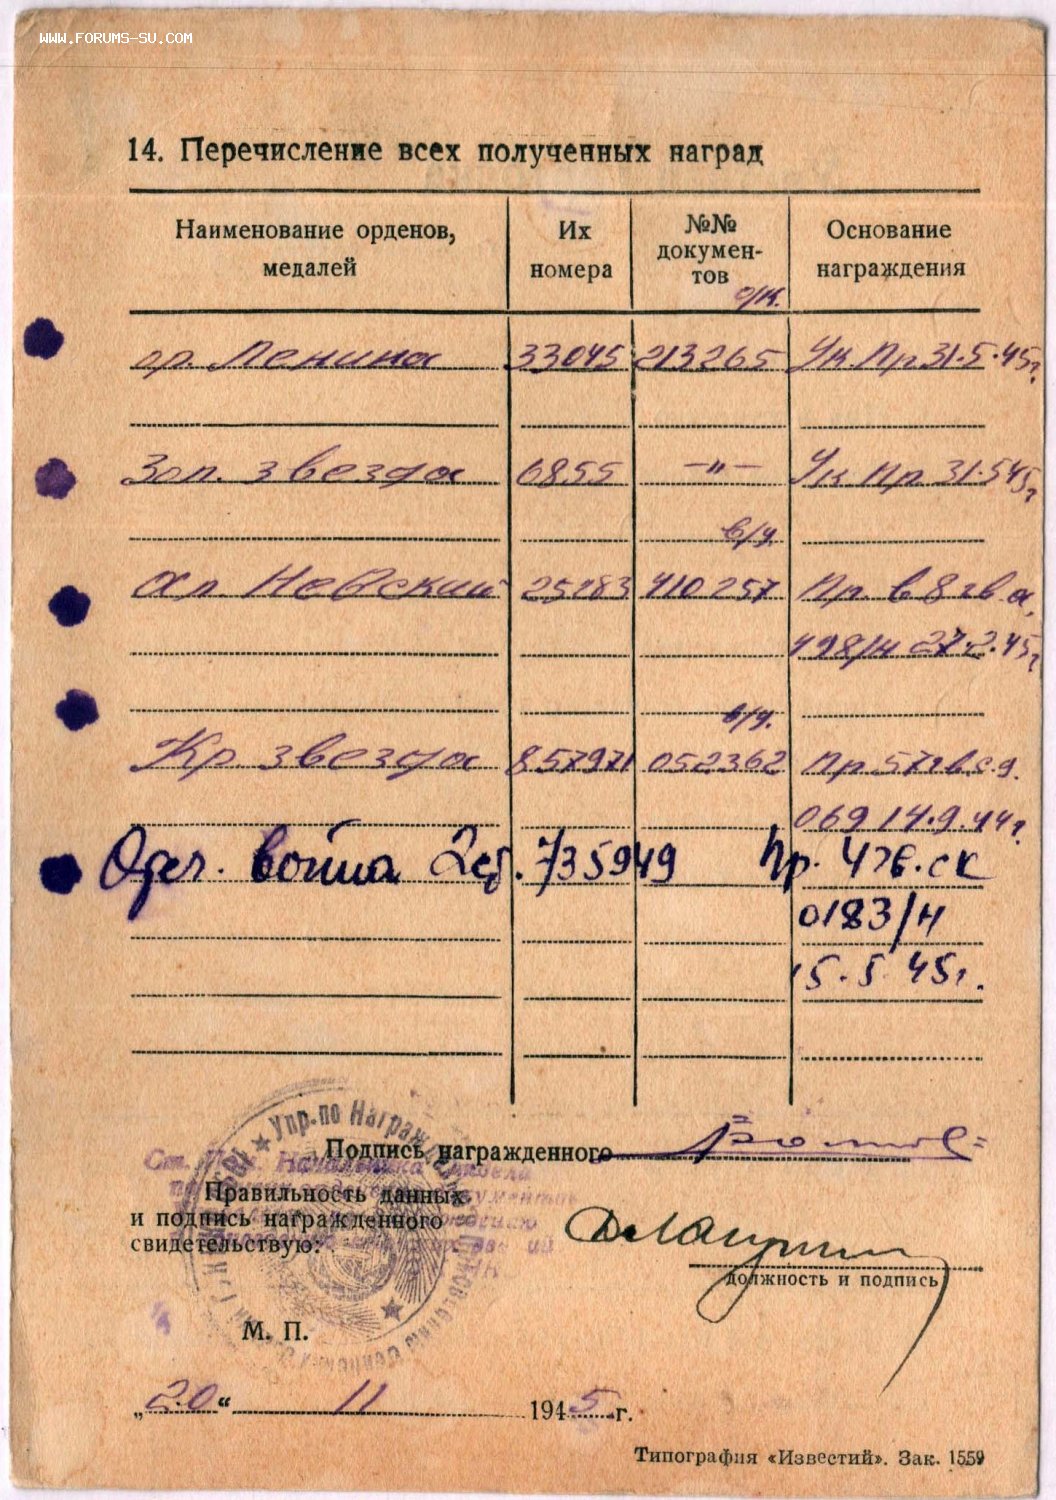 WWW.FORUMS-SU.COM
14. Перечисление всех полученных наград
Наименование орденов, медалей
Их номера
№№ докумен-тов
о/к.
Основание награждения
ор. Ленина 33045 213265 Ук. Пр. 31.5.45г.
Зол. звезда 6855 —"— Ук Пр. 31.5.45г
в/у.
Ал. Невский 410257 Пр. в 8 гв. а.
498/н 27.2.45г
в/у.
Кр. звезда 857971 052362 Пр. 57 гв. с. д.
069 14.9.44г.
Отеч. война 2 ст. 735949 Пр. 4 гв. ск
0183/н
15.5.45г.
Подпись награжденного
Правильность данных
и подпись награжденного
свидетельствую:
должность и подпись
М. П.
„20“ 11 1945 г.
Типография «Известий». Зак. 1559